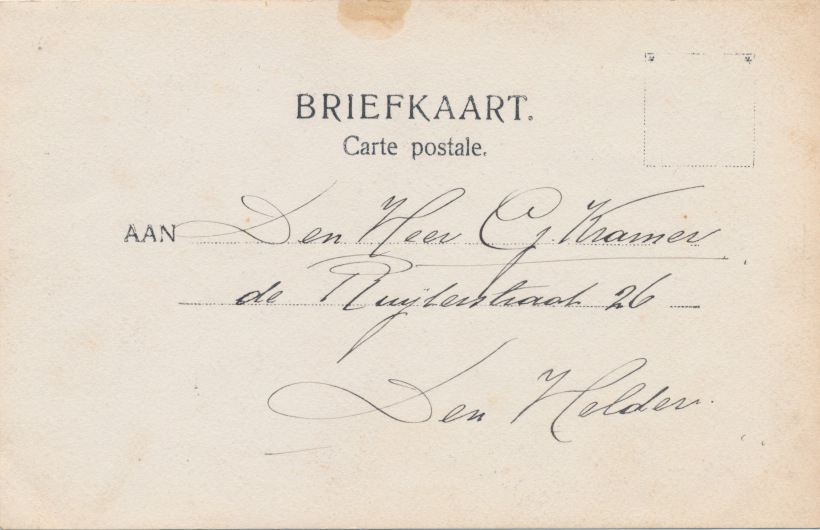 BRIEFKAART.
Carte postale.
AAN Den Heer C J. Kramer
de Ruijterstraat 26
Den Helder.